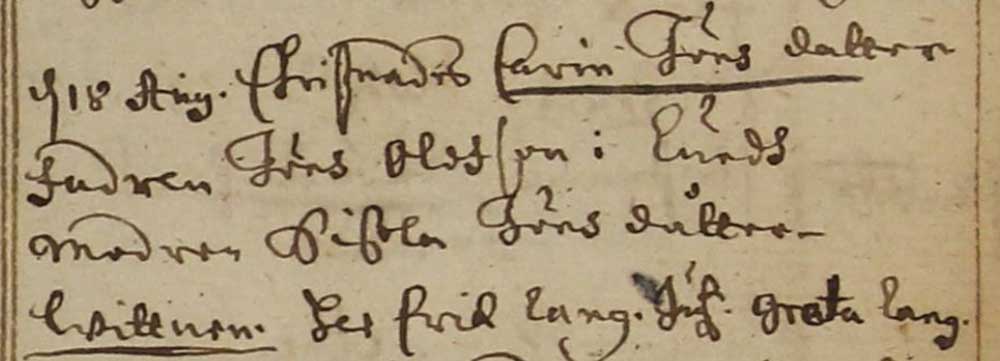 d 18 Aug. Christnades Carin Jöns dotter
Fadren Jöns Olofsson i Lunds
Modren Sissela Jöns dotter
Wittnen. Her Erik Lang. Jüf. Greta Lang.